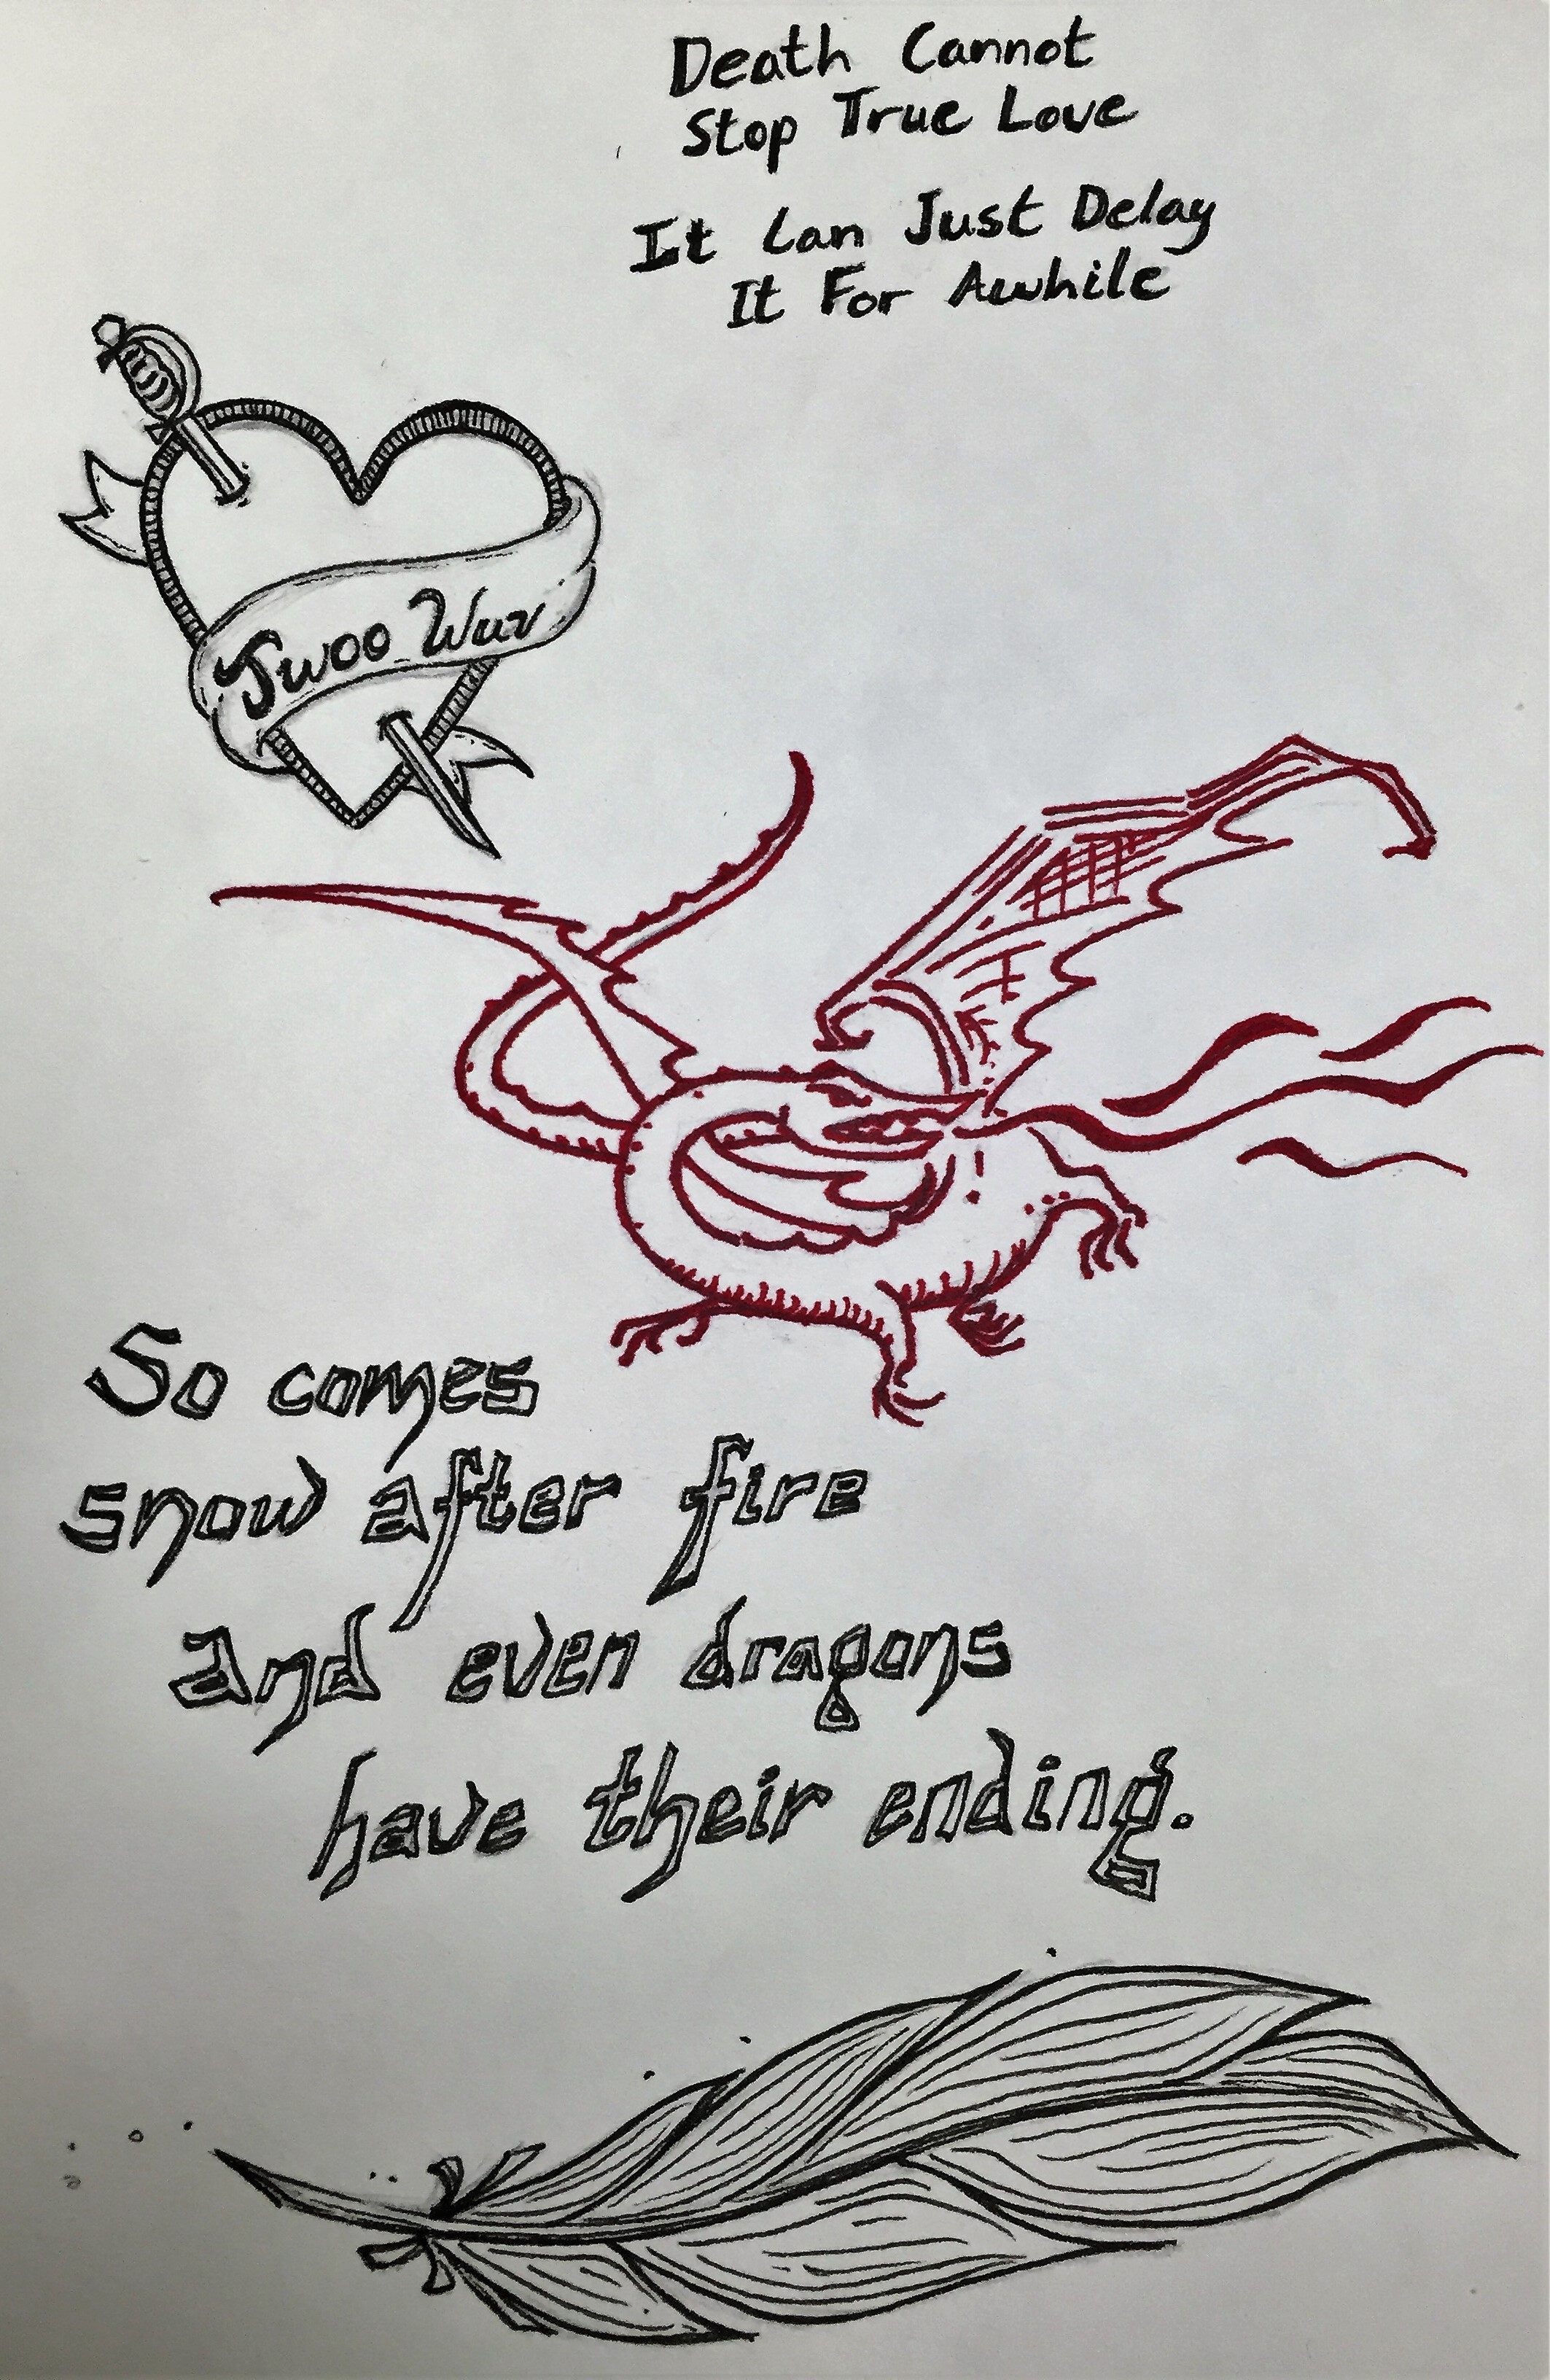 Death Cannot
Stop True Love
It Can Just Delay
It For Awhile
Twoo Wuv
So comes
snow after fire
and even dragons
have their ending.